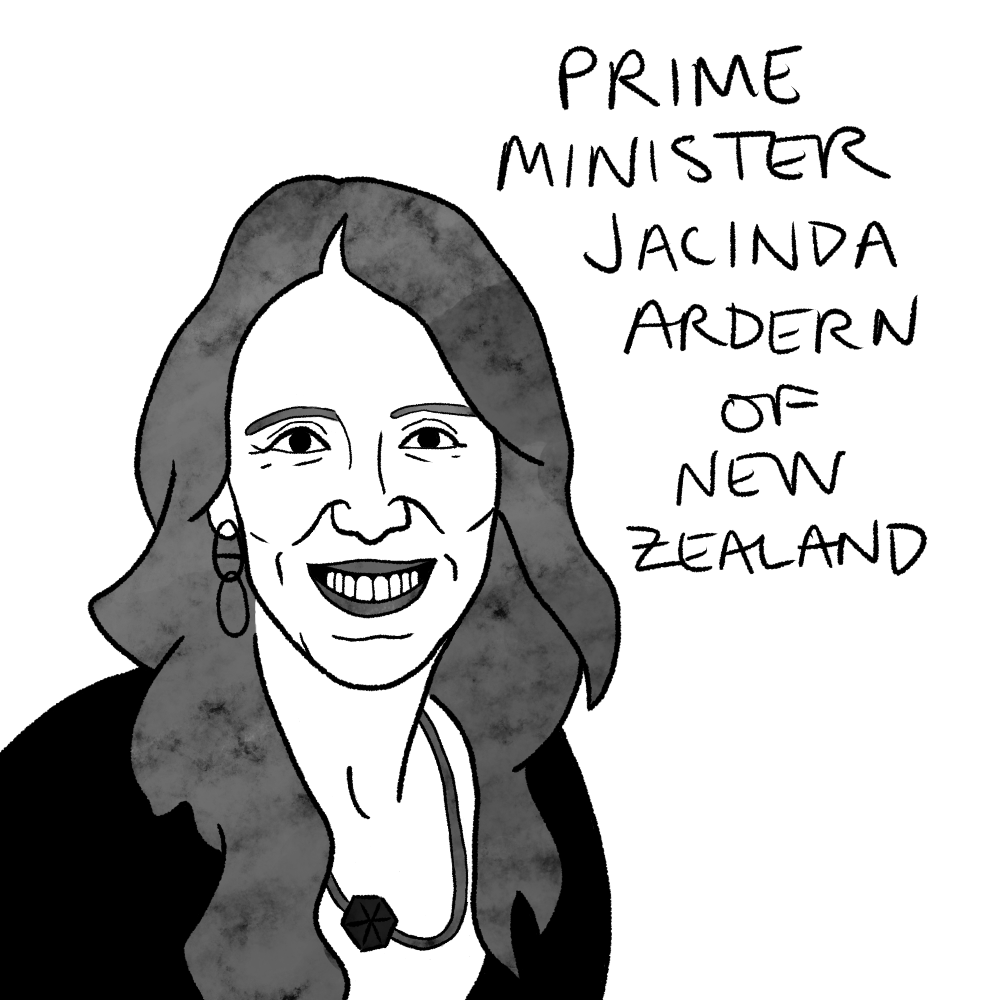 PRIME
MINISTER
JACINDA
ARDERN
OF
NEW
ZEALAND